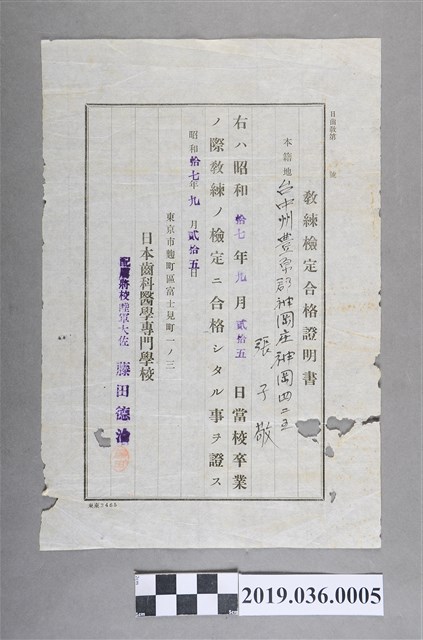 日歯教第　號
教練檢定合格證明書
本籍地 台中州豐原郡神岡庄神岡四二五
張子敬
右ハ昭和拾七年九月貳拾五日當校卒業
ノ際教練ノ檢定ニ合格シタル事ヲ證ス
昭和拾七年九月貳拾五日
東京市麴町區富士見町一ノ三
日本齒科醫學專門學校
配屬將校陸軍大佐 藤田德治
2019.036.0005